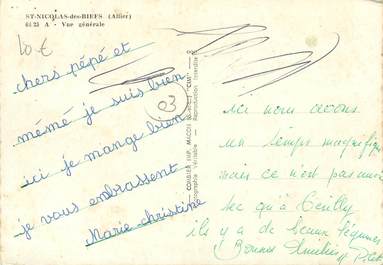 ST-NICOLAS-des-BIEFS (Allier)
61 25 A - Vue générale
10 €
chers pépé et
mémé je suis bien
ici je mange bien
je vous embrassent
Marie christine
03
COMBIER IMP. MACON "CIM"
Reproduction Interdite
ici nous avons
un temps magnifique
mais ce n'est pas
sec qu'à
il y a de beaux légumes
Bonnes